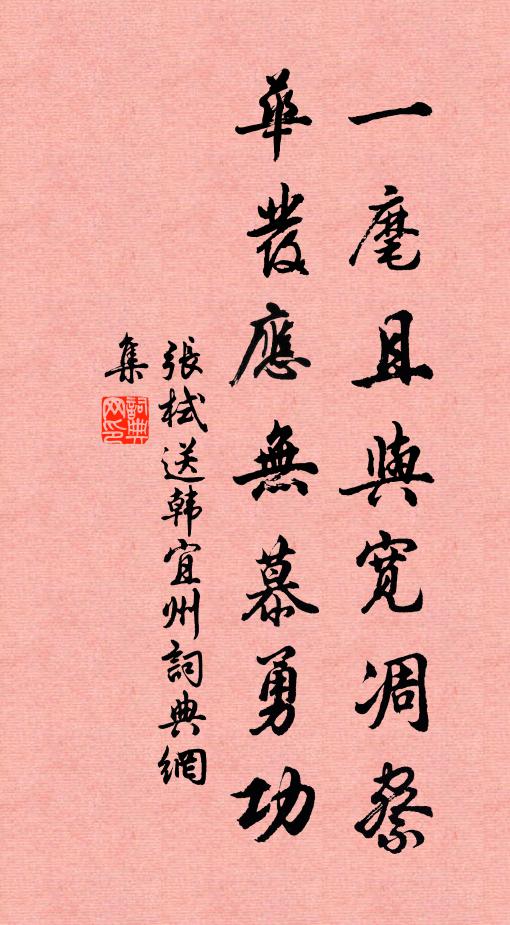 一麾且與寬凋瘵
華發應無慕勇功
張栻送韩宜州詞典網
集
詞典网印